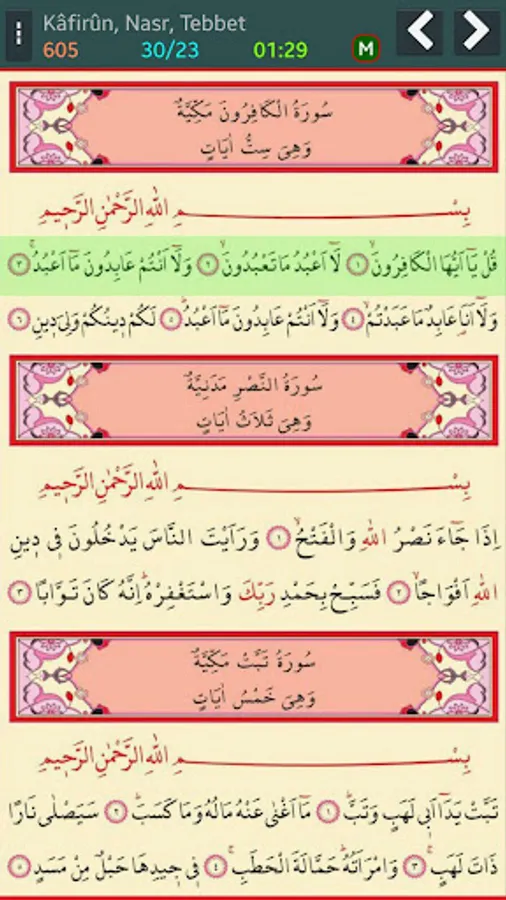 Kâfirûn, Nasr, Tebbet
605 30/23 01:29 M
سُورَةُ الْكَافِرُونَ مَكِّيَّةٌ
وَهِىَ سِتُّ اٰيَاتٍ
بِسْمِ اللهِ الرَّحْمٰنِ الرَّحٖيمِ
قُلْ يَٓا اَيُّهَا الْكَافِرُونَۙ ﴿١﴾ لَٓا اَعْبُدُ مَا تَعْبُدُونَۙ ﴿٢﴾ وَلَٓا اَنْتُمْ عَابِدُونَ مَٓا اَعْبُدُۚ ﴿٣﴾
وَلَٓا اَنَا۬ عَابِدٌ مَا عَبَدْتُمْۙ ﴿٤﴾ وَلَٓا اَنْتُمْ عَابِدُونَ مَٓا اَعْبُدُۜ ﴿٥﴾ لَكُمْ دٖينُكُمْ وَلِىَ دٖينِ ﴿٦﴾
سُورَةُ النَّصْرِ مَدَنِيَّةٌ
وَهِىَ ثَلَاثُ اٰيَاتٍ
بِسْمِ اللهِ الرَّحْمٰنِ الرَّحٖيمِ
اِذَا جَٓاءَ نَصْرُ اللهِ وَالْفَتْحُۙ ﴿١﴾ وَرَاَيْتَ النَّاسَ يَدْخُلُونَ فٖى دٖينِ
اللهِ اَفْوَاجًاۙ ﴿٢﴾ فَسَبِّحْ بِحَمْدِ رَبِّكَ وَاسْتَغْفِرْهُۜ اِنَّهُ كَانَ تَوَّابًا ﴿٣﴾
سُورَةُ تَبَّتْ مَكِّيَّةٌ
وَهِىَ خَمْسُ اٰيَاتٍ
بِسْمِ اللهِ الرَّحْمٰنِ الرَّحٖيمِ
تَبَّتْ يَدَٓا اَبٖى لَهَبٍ وَتَبَّۜ ﴿١﴾ مَٓا اَغْنٰى عَنْهُ مَالُهُ وَمَا كَسَبَۜ ﴿٢﴾ سَيَصْلٰى نَارًا
ذَاتَ لَهَبٍۚ ﴿٣﴾ وَامْرَاَتُهُۜ حَمَّالَةَ الْحَطَبِۚ ﴿٤﴾ فٖى جٖيدِهَا حَبْلٌ مِنْ مَسَدٍ ﴿٥﴾